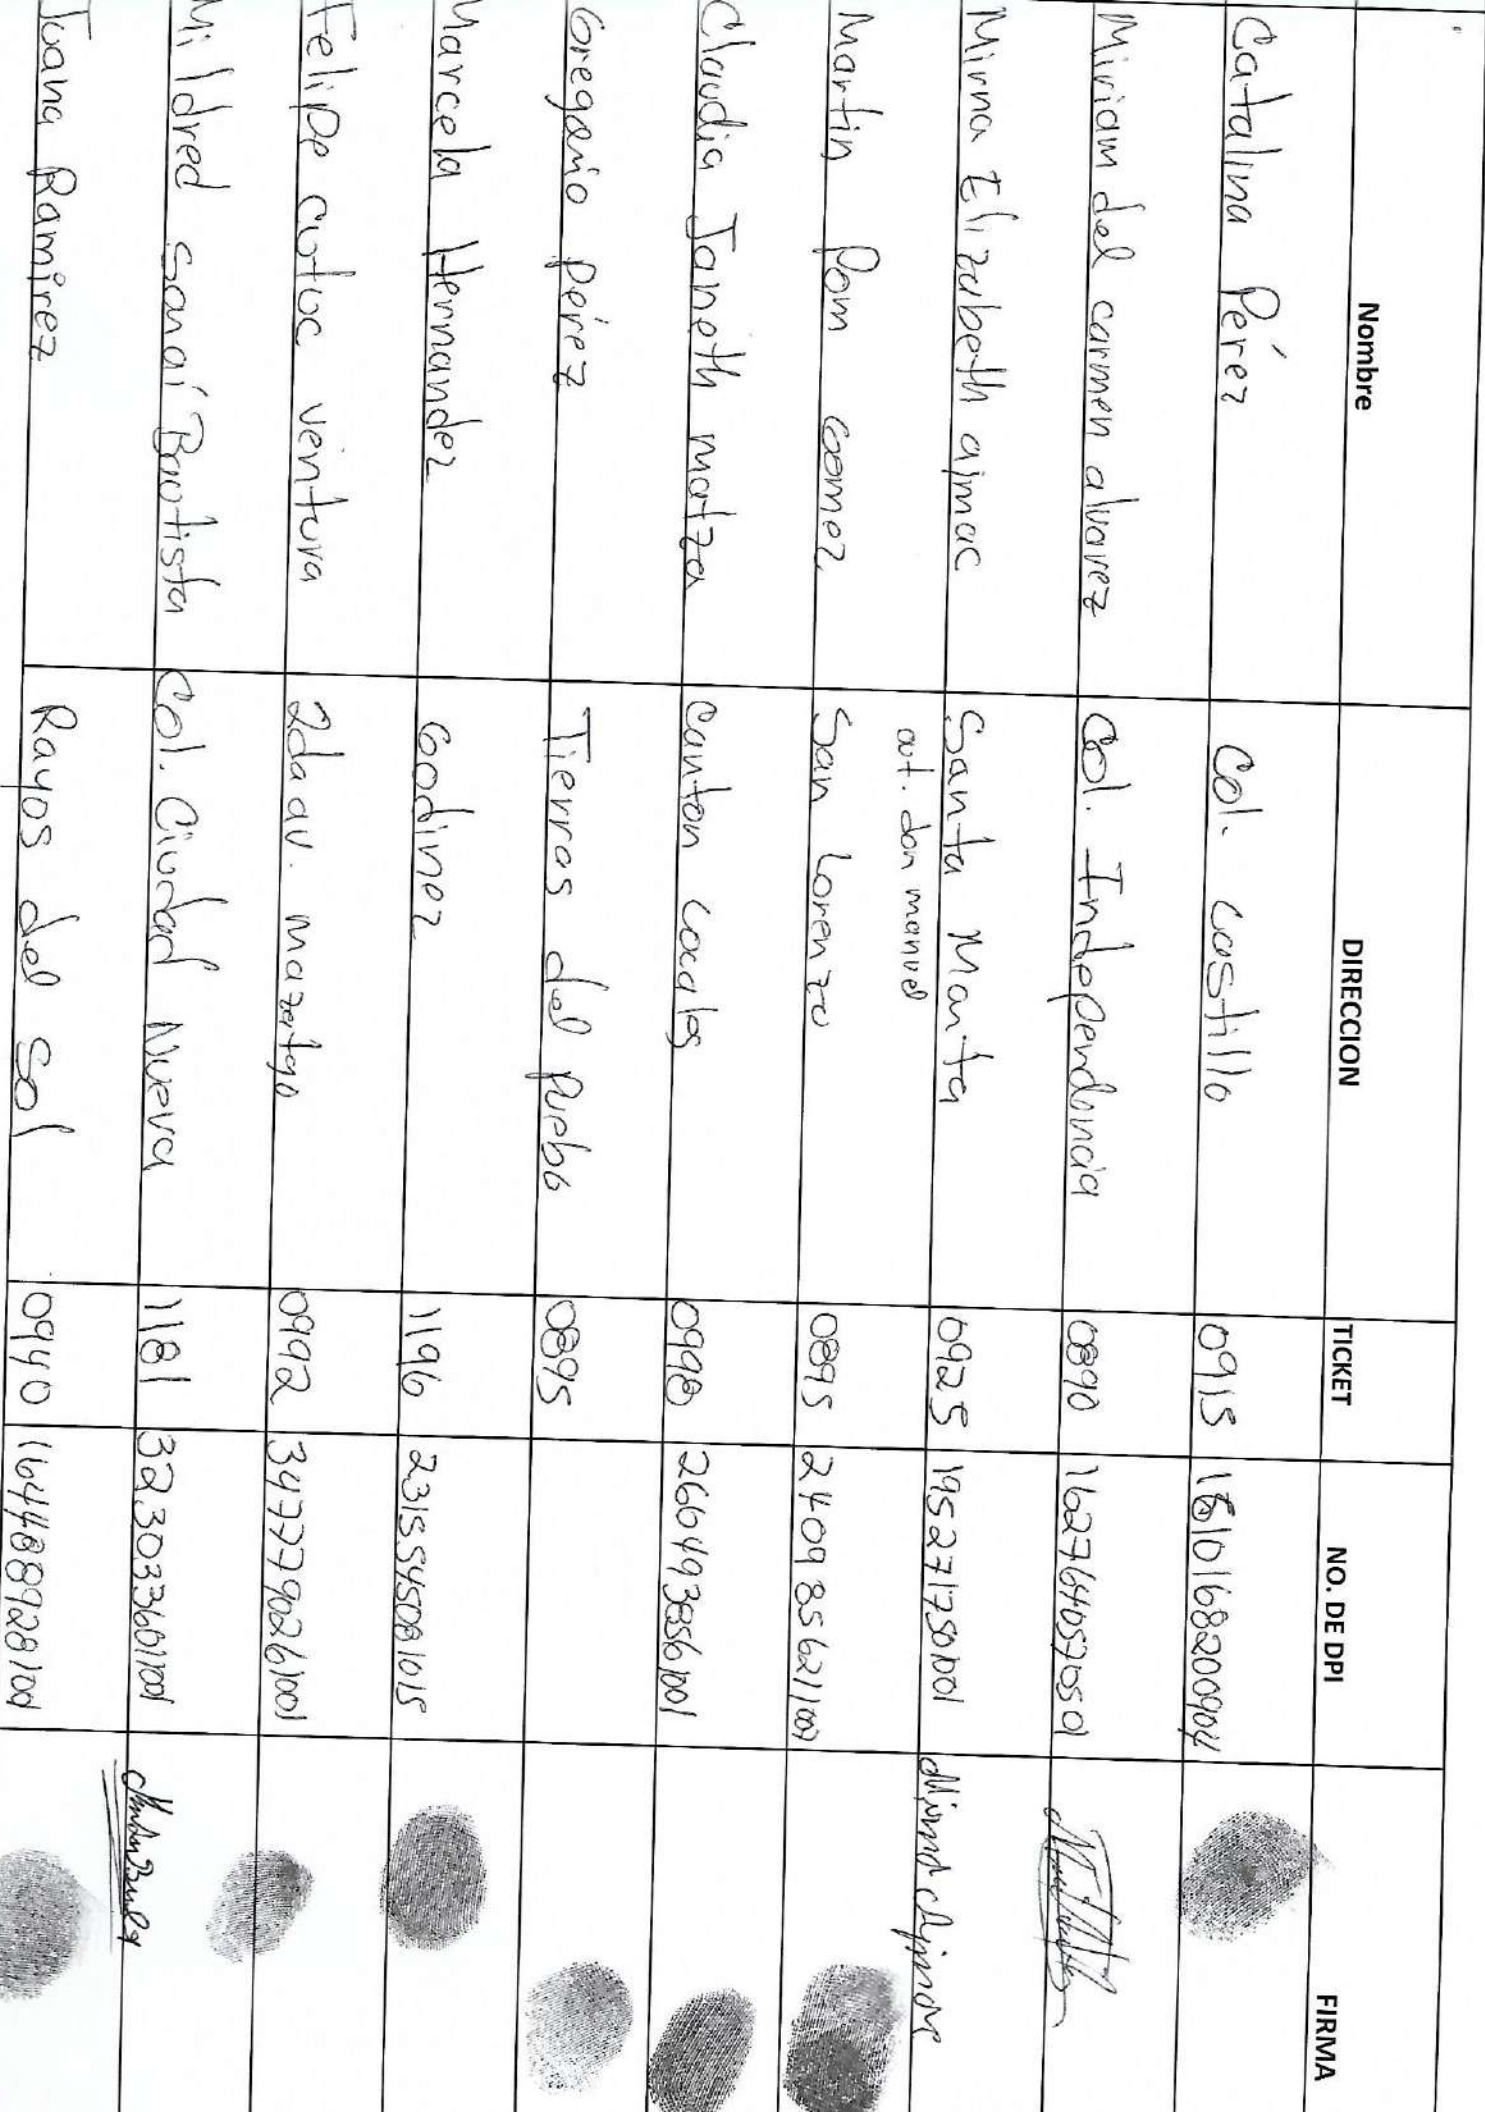 Nombre DIRECCION TICKET NO. DE DPI FIRMA
Catalina Pérez Col. Castillo 0915 1610168200904
Miriam del carmen alvarez Col. Independencia 0890 1627640570501
Mirna Elizabeth ajmac Santa Marta 0925 1952717501001 Mirna Ajmac
aut. don manuel
Martin Pom Gomez San Lorenzo 0895 2409856211001
Claudia Janeth matza Canton Cocales 0998 2664938561001
Gregorio pérez Tierras del Pueblo 0895
Marcela Hernandez Godinez 1196 2315545081015
Felipe cutuc ventura 2da av. mazatgo 0992 3477790261001
Mildred Sanaí Bautista Col. Ciudad Nueva 1181 3230336011001
Juana Ramirez Rayos del Sol 0940 1644889281001